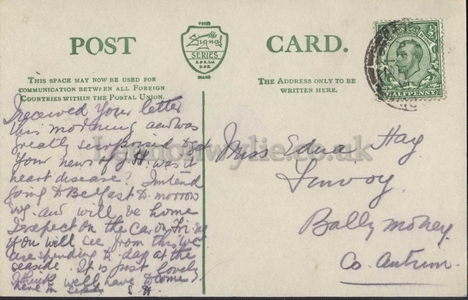 POST CARD.
THE
Signal
SERIES
THIS SPACE MAY NOW BE USED FOR
COMMUNICATION BETWEEN ALL FOREIGN
COUNTRIES WITHIN THE POSTAL UNION.
THE ADDRESS ONLY TO BE
WRITTEN HERE.
HALFPENNY
I received your letter
this morning and was
greatly surprised at
your news of J.H. Was it
heart disease? I intend
going to Belfast to morrow
and will be home
I expect on the Car on Fri.
You will see from this we
are spending to day at the
seaside. It is just lovely
I think we'll have to come
here
Miss Edna Hay
Ballymoney
Co. Antrim